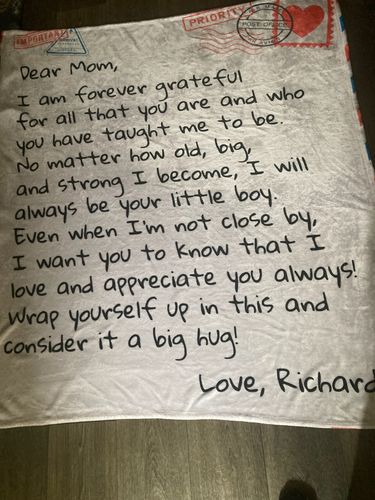 IMPORTANT
PRIORITY
POST OFFICE
Dear Mom,
I am forever grateful
for all that you are and who
you have taught me to be.
No matter how old, big,
and strong I become, I will
always be your little boy.
Even when I'm not close by,
I want you to know that I
love and appreciate you always!
Wrap yourself up in this and
consider it a big hug!
Love, Richard